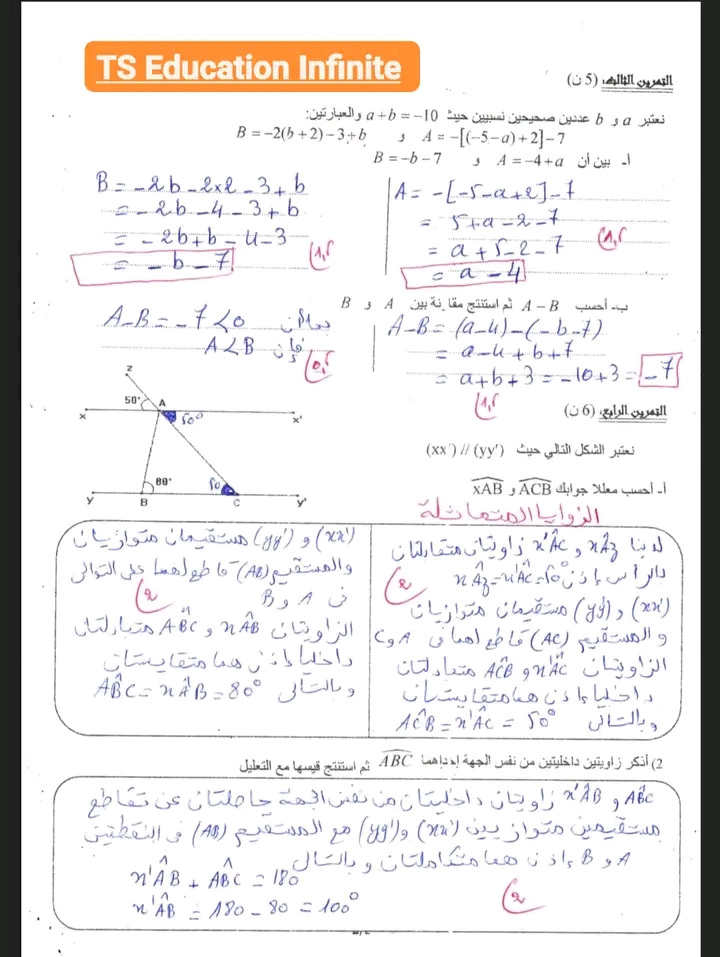 TS Education Infinite
التمرين الثالث: (5 ن)
نعتبر a و b عددين صحيحين نسبيين حيث a+b = −10 والعبارتين:
A = −[(−5−a)+2]−7 و B = −2(b+2)−3+b
أ- بين أن A = −4+a و B = −b−7
A = -[-5-a+2]-7
= 5+a-2-7
= a+5-2-7
= a-4
1,5
B = -2b-2×2-3+b
= -2b-4-3+b
= -2b+b-4-3
= -b-7
1,5
ب- أحسب A−B ثم استنتج مقارنة بين A و B
A-B = (a-4)-(-b-7)
= a-4+b+7
= a+b+3 = -10+3 = -7
1,5
بما أن A-B = -7 < 0
فإن A < B
0,5
التمرين الرابع: (6 ن)
نعتبر الشكل التالي حيث (xx') // (yy')
z
50° A
x x'
50°
80° 50
y B C y'
أ- أحسب معللا جوابك ACB و xAB
الزوايا المتماثلة
لدينا xÂz و x'ÂC زاويتان متقابلتان
بالرأس إذن xÂz = x'ÂC = 50°
2
(xx') و (yy') مستقيمان متوازيان
و المستقيم (AC) قاطع لهما في A و C
الزاويتان x'ÂC و AĈB متبادلتان
داخليا إذن هما متقايستان
وبالتالي AĈB = x'ÂC = 50°
(xx') و (yy') مستقيمان متوازيان
والمستقيم (AB) قاطع لهما على التوالي
في A و B
2
الزاويتان xÂB و AB̂C متبادلتان
داخليا إذن هما متقايستان
وبالتالي AB̂C = xÂB = 80°
2) أذكر زاويتين داخليتين من نفس الجهة إحداهما ABC ثم استنتج قيسها مع التعليل
AB̂C و x'ÂB زاويتان داخليتان من نفس الجهة حاصلتان عن تقاطع
مستقيمين متوازيين (xx') و (yy') مع المستقيم (AB) في النقطتين
A و B إذن هما متكاملتان وبالتالي
x'ÂB + AB̂C = 180
x'ÂB = 180 - 80 = 100°
2